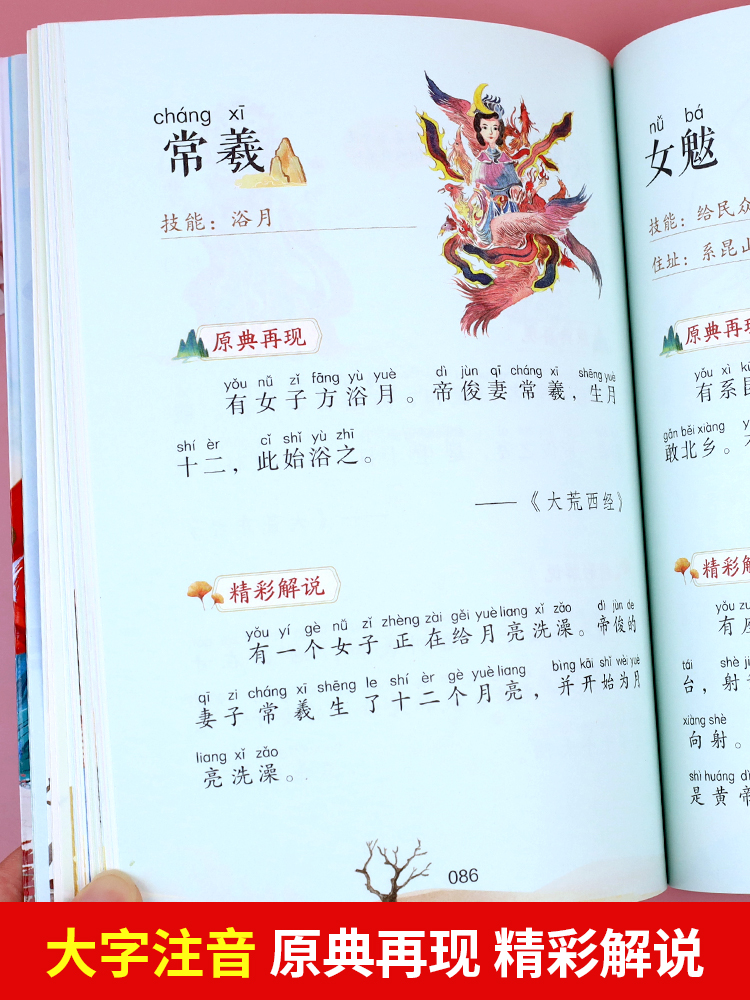 cháng xī
常羲
技能：浴月
原典再现
yǒu nǚ zǐ fāng yù yuè dì jùn qī cháng xī shēng yuè
有女子方浴月。帝俊妻常羲，生月
shí èr cǐ shǐ yù zhī
十二，此始浴之。
——《大荒西经》
精彩解说
yǒu yí gè nǚ zǐ zhèng zài gěi yuè liang xǐ zǎo dì jùn de
有一个女子正在给月亮洗澡。帝俊的
qī zi cháng xī shēng le shí èr gè yuè liang bìng kāi shǐ wèi yuè
妻子常羲生了十二个月亮，并开始为月
liang xǐ zǎo
亮洗澡。
086
nǚ bá
女魃
技能：给民众
住址：系昆山
原典再现
yǒu xì kūn
有系昆
gǎn běi xiàng
敢北乡。
精彩解
yǒu zuò
有
tái shè
台，射
xiàng shè
向射。
shì huáng dì
是黄帝
大字注音 原典再现 精彩解说